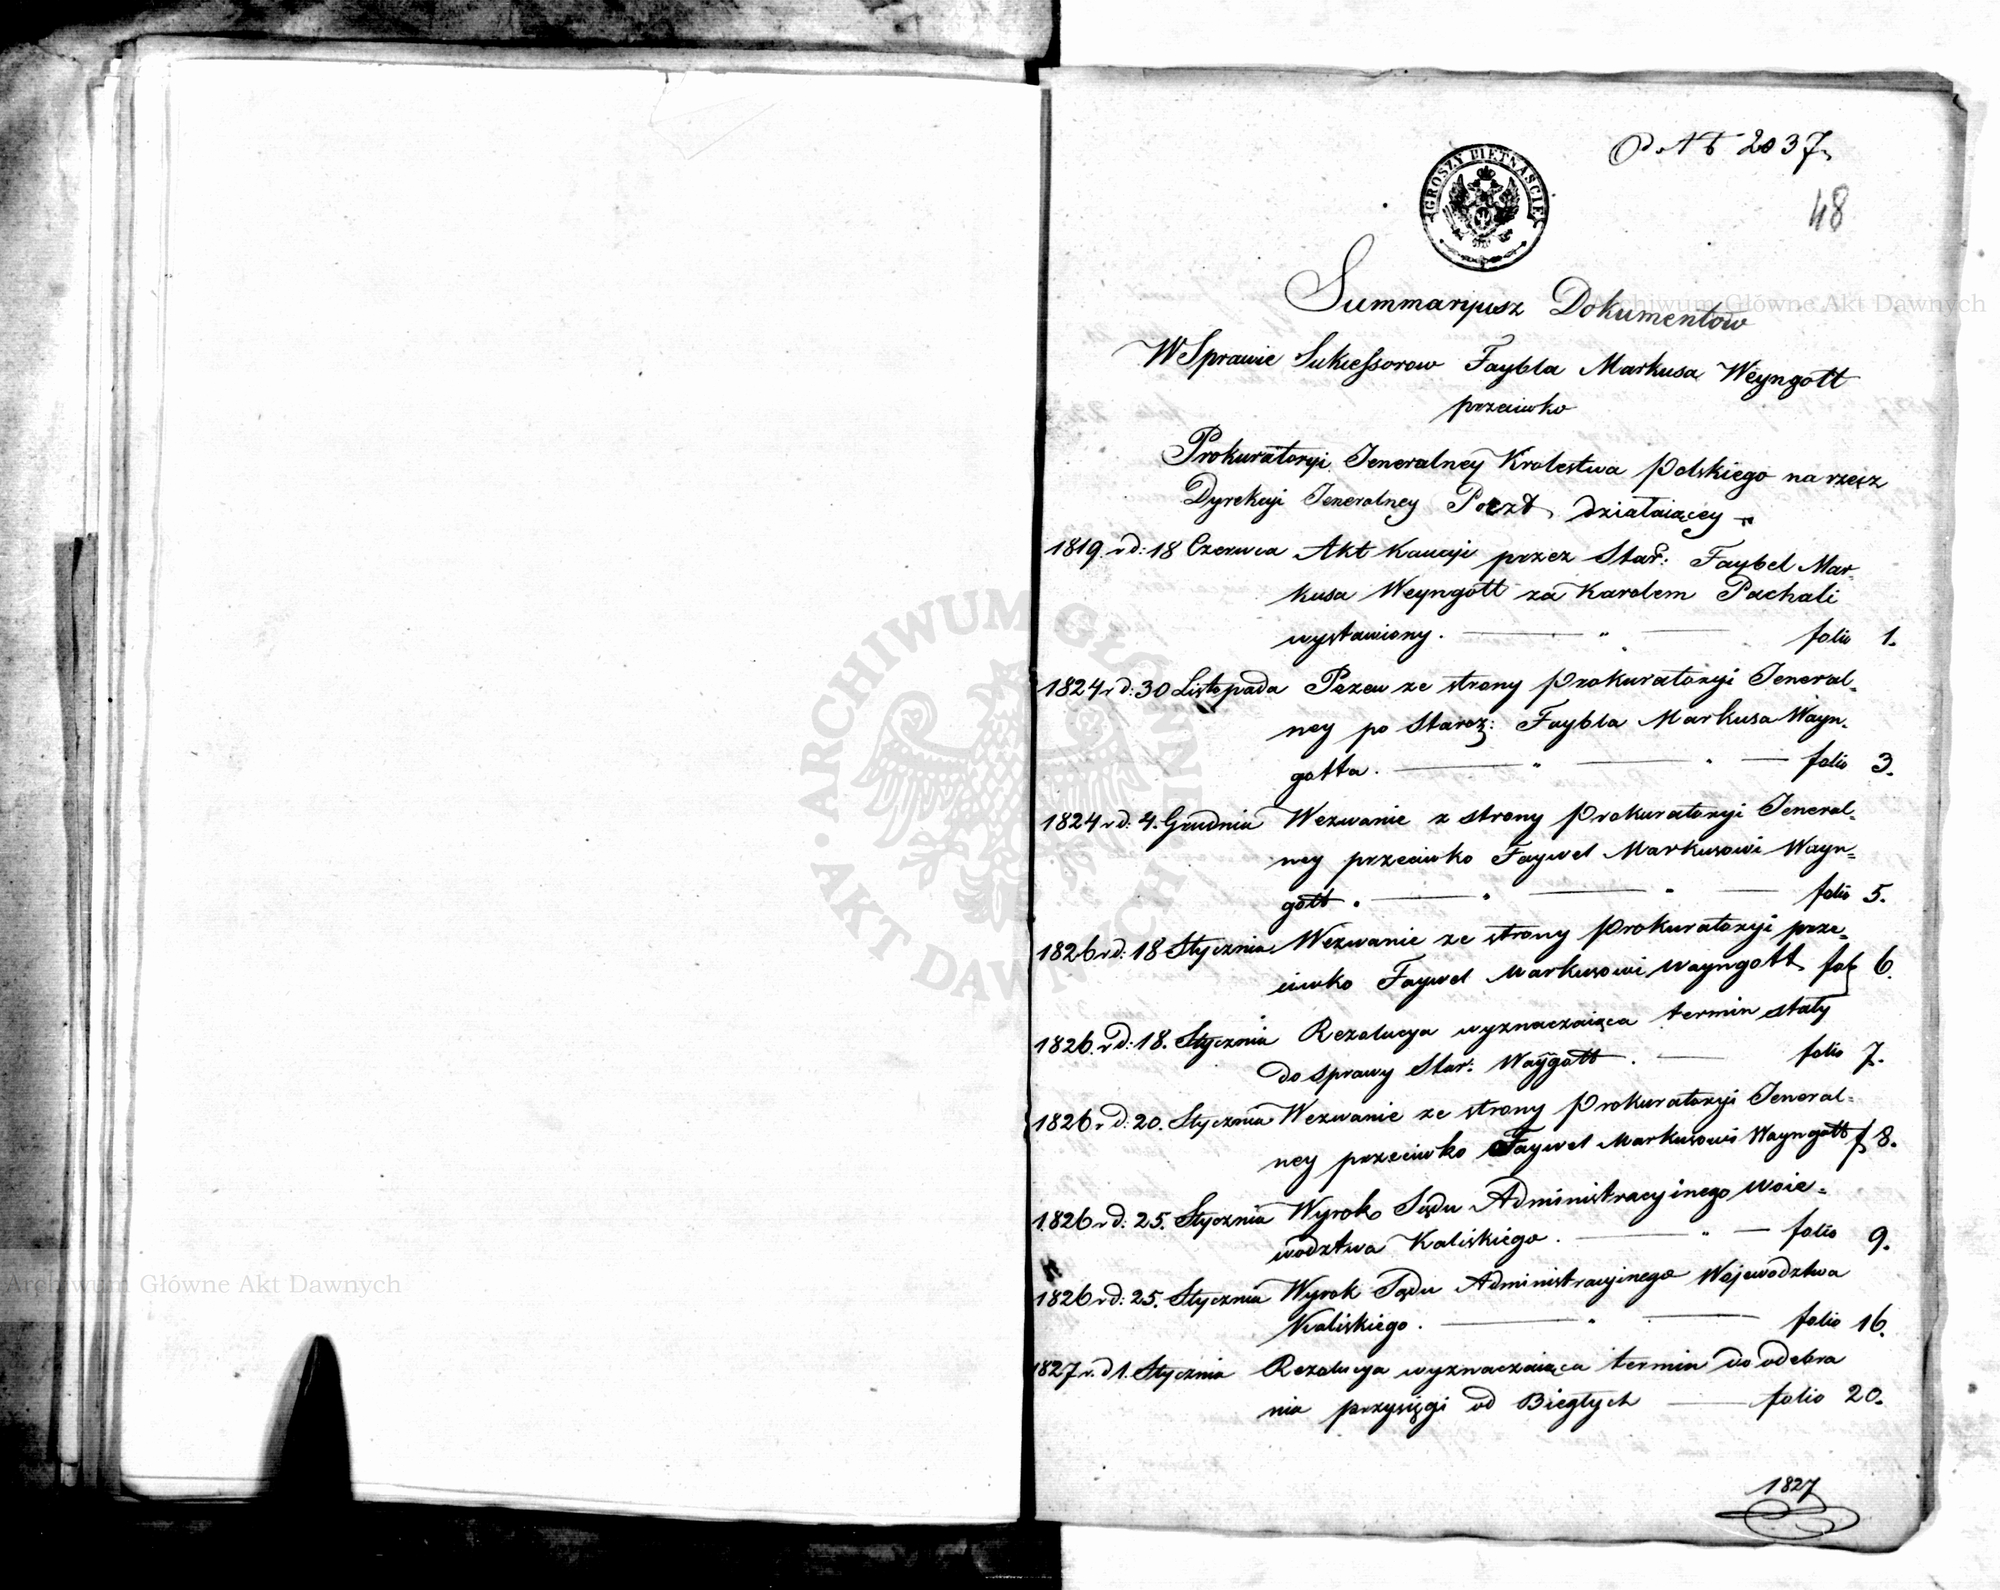 2037
GROSZY PIĘTNAŚCIE
48
Summaryusz Dokumentow
W Sprawie Sukcessorow Faybla Markusa Weyngott
przeciwko
Prokuratoryi Jeneralney Krolestwa Polskiego na rzecz
Dyrekcyi Jeneralney Poczt działaiącey
1819 r d: 18 Czerwca Akt Kaucyi przez Star: Faybel Mar-
kusa Weyngott za Karolem Pachali
wystawiony. — " — folio 1.
1824 r d: 30 Listopada Pozew ze strony Prokuratoryi Jeneral-
ney po Staroz: Faybla Markusa Wayn-
gotta. — " — " — folio 3.
1824 r d: 4. Grudnia Wezwanie z strony Prokuratoryi Jeneral-
ney przeciwko Faywel Markusowi Wayn=
gott. — " — " — folio 5.
1826 r d: 18 Stycznia Wezwanie ze strony Prokuratoryi prze-
ciwko Faywel Markusowi Wayngott fol 6.
1826 r d: 18. Stycznia Rezolucya wyznaczaiąca termin stały
do sprawy Star: Waÿgott. — folio 7.
1826 r d: 20. Stycznia Wezwanie ze strony Prokuratoryi Jeneral-
ney przeciwko Faywel Markusowi Wayngott f 8.
1826 r d: 25. Stycznia Wyrok Sądu Administracyinego Woie-
wodztwa Kaliskiego. — " — folio 9.
1826 r d: 25. Stycznia Wyrok Sądu Administracyinego Wojewodztwa
Kaliskiego. — " — folio 16.
1827 r. d 1. Stycznia Rezolucya wyznaczaiąca termin do odebra
nia przysięgi od Biegłych — folio 20.
1827
Archiwum Główne Akt Dawnych
ARCHIWUM GŁÓWNE AKT DAWNYCH
Archiwum Główne Akt Dawnych